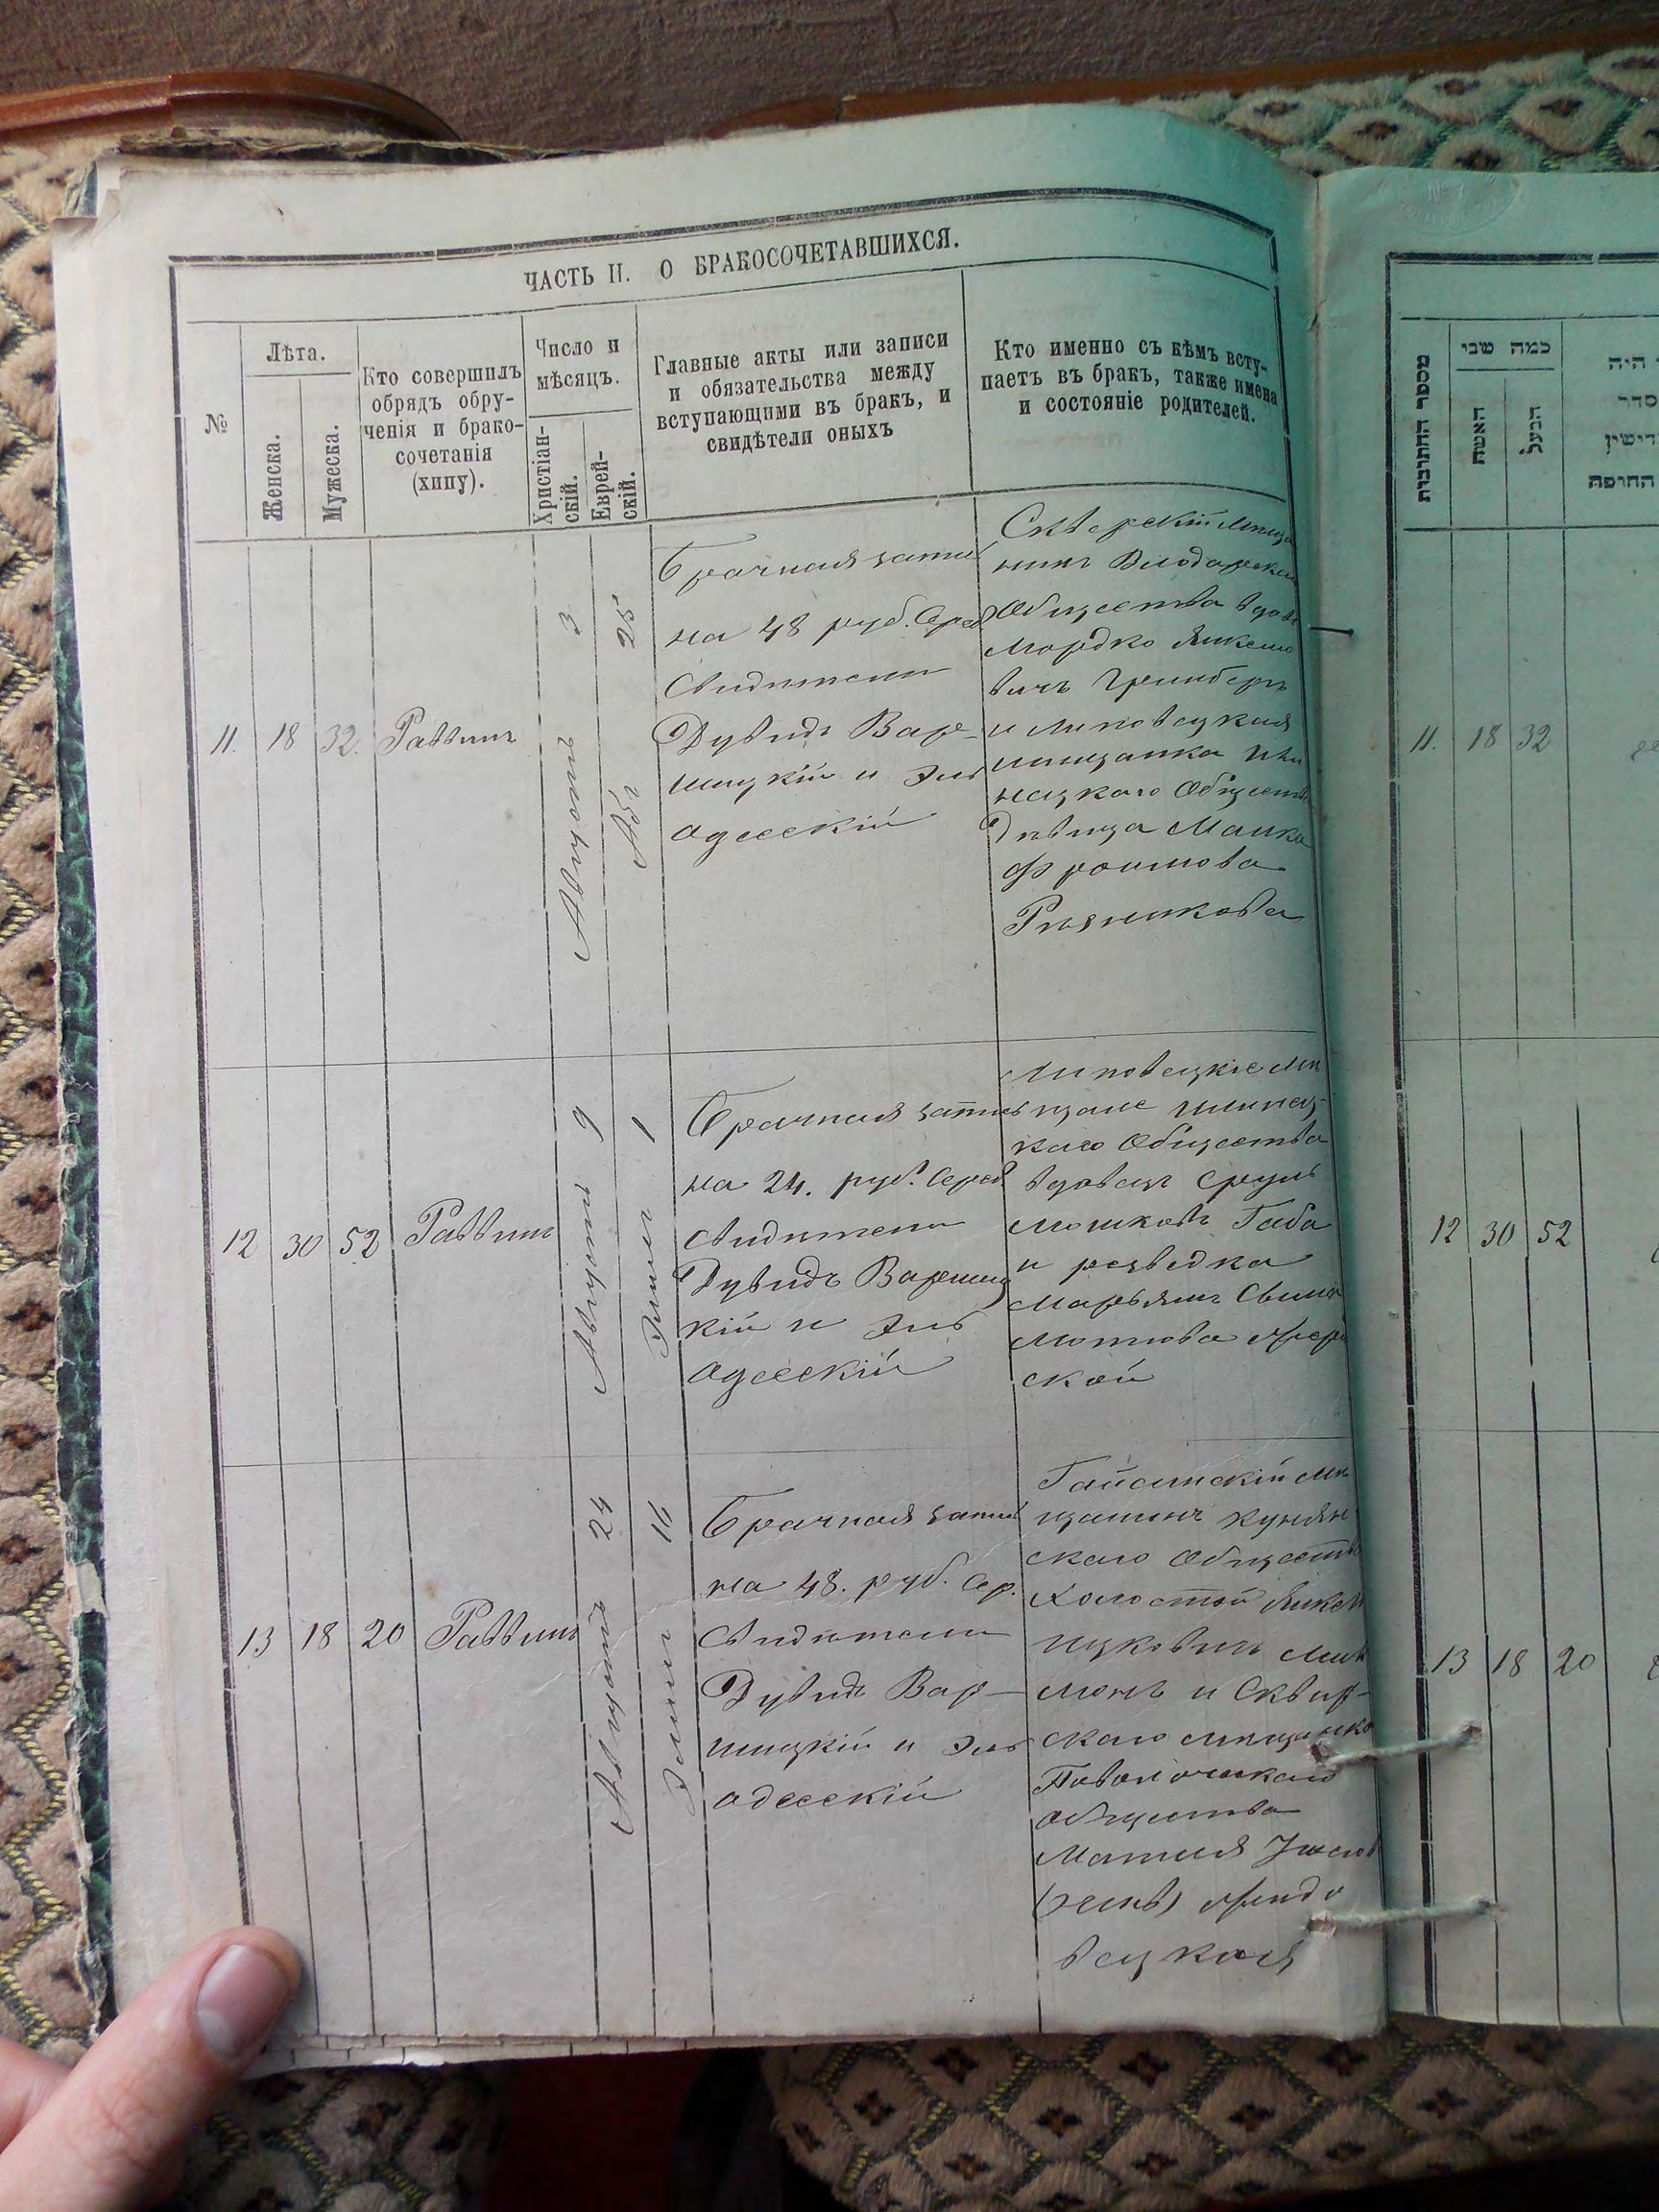 ЧАСТЬ II. О БРАКОСОЧЕТАВШИХСЯ.
№
Лѣта.
Женска.
Мужеска.
Кто совершилъ
обрядъ обру-
ченія и брако-
сочетанія
(хипу).
Число и
мѣсяцъ.
Христіан-
скій.
Еврей-
скій.
Главные акты или записи
и обязательства между
вступающими въ бракъ, и
свидѣтели оныхъ
Кто именно съ кѣмъ всту-
паетъ въ бракъ, также имена
и состояніе родителей.
11. 18 32. Раввинъ
Августъ 3
Абъ 25
Брачная запись
на 48 руб. Сереб
Свидѣтели
Дувидъ Вар-
шицкій и Эль
Одесскій
Сквѣрскій мѣща
нинъ Володарскаго
Общества вдов
Мордко Янкело
вичъ Гринбергъ
и Липовецкая
мѣщанка Или
нецкаго Обществ
Дѣвица Малка
Фроимова
Рѣзникова
12 30 52 Раввинъ
Августъ 9
Элулъ 1
Брачная запись
на 24. руб. Сереб
Свидѣтели
Дувидъ Варшиц
кій и Эль
Одесскій
Липовецкіе мѣ
щане Илинец-
каго Общества
вдовецъ Сруль
Мошковъ Габа
и разведка
Марьямъ
Мотова
ской
13 18 20 Раввинъ
Августъ 24
Элулъ 16
Брачная запись
на 48. руб. Сер.
Свидѣтели
Дувидъ Вар-
шицкій и Эль
Одесскій
Гайсинскій мѣ
щанинъ Кунян
скаго Обществ
Холостой Янкель
Ицковичъ
и Сквир-
скаго мѣщанка
Паволочскаго
общества
вецкая
מספר החתונות
כמה שני
האשה
הבעל
היה
סדר
החופה
11. 18 32
12 30 52
13 18 20